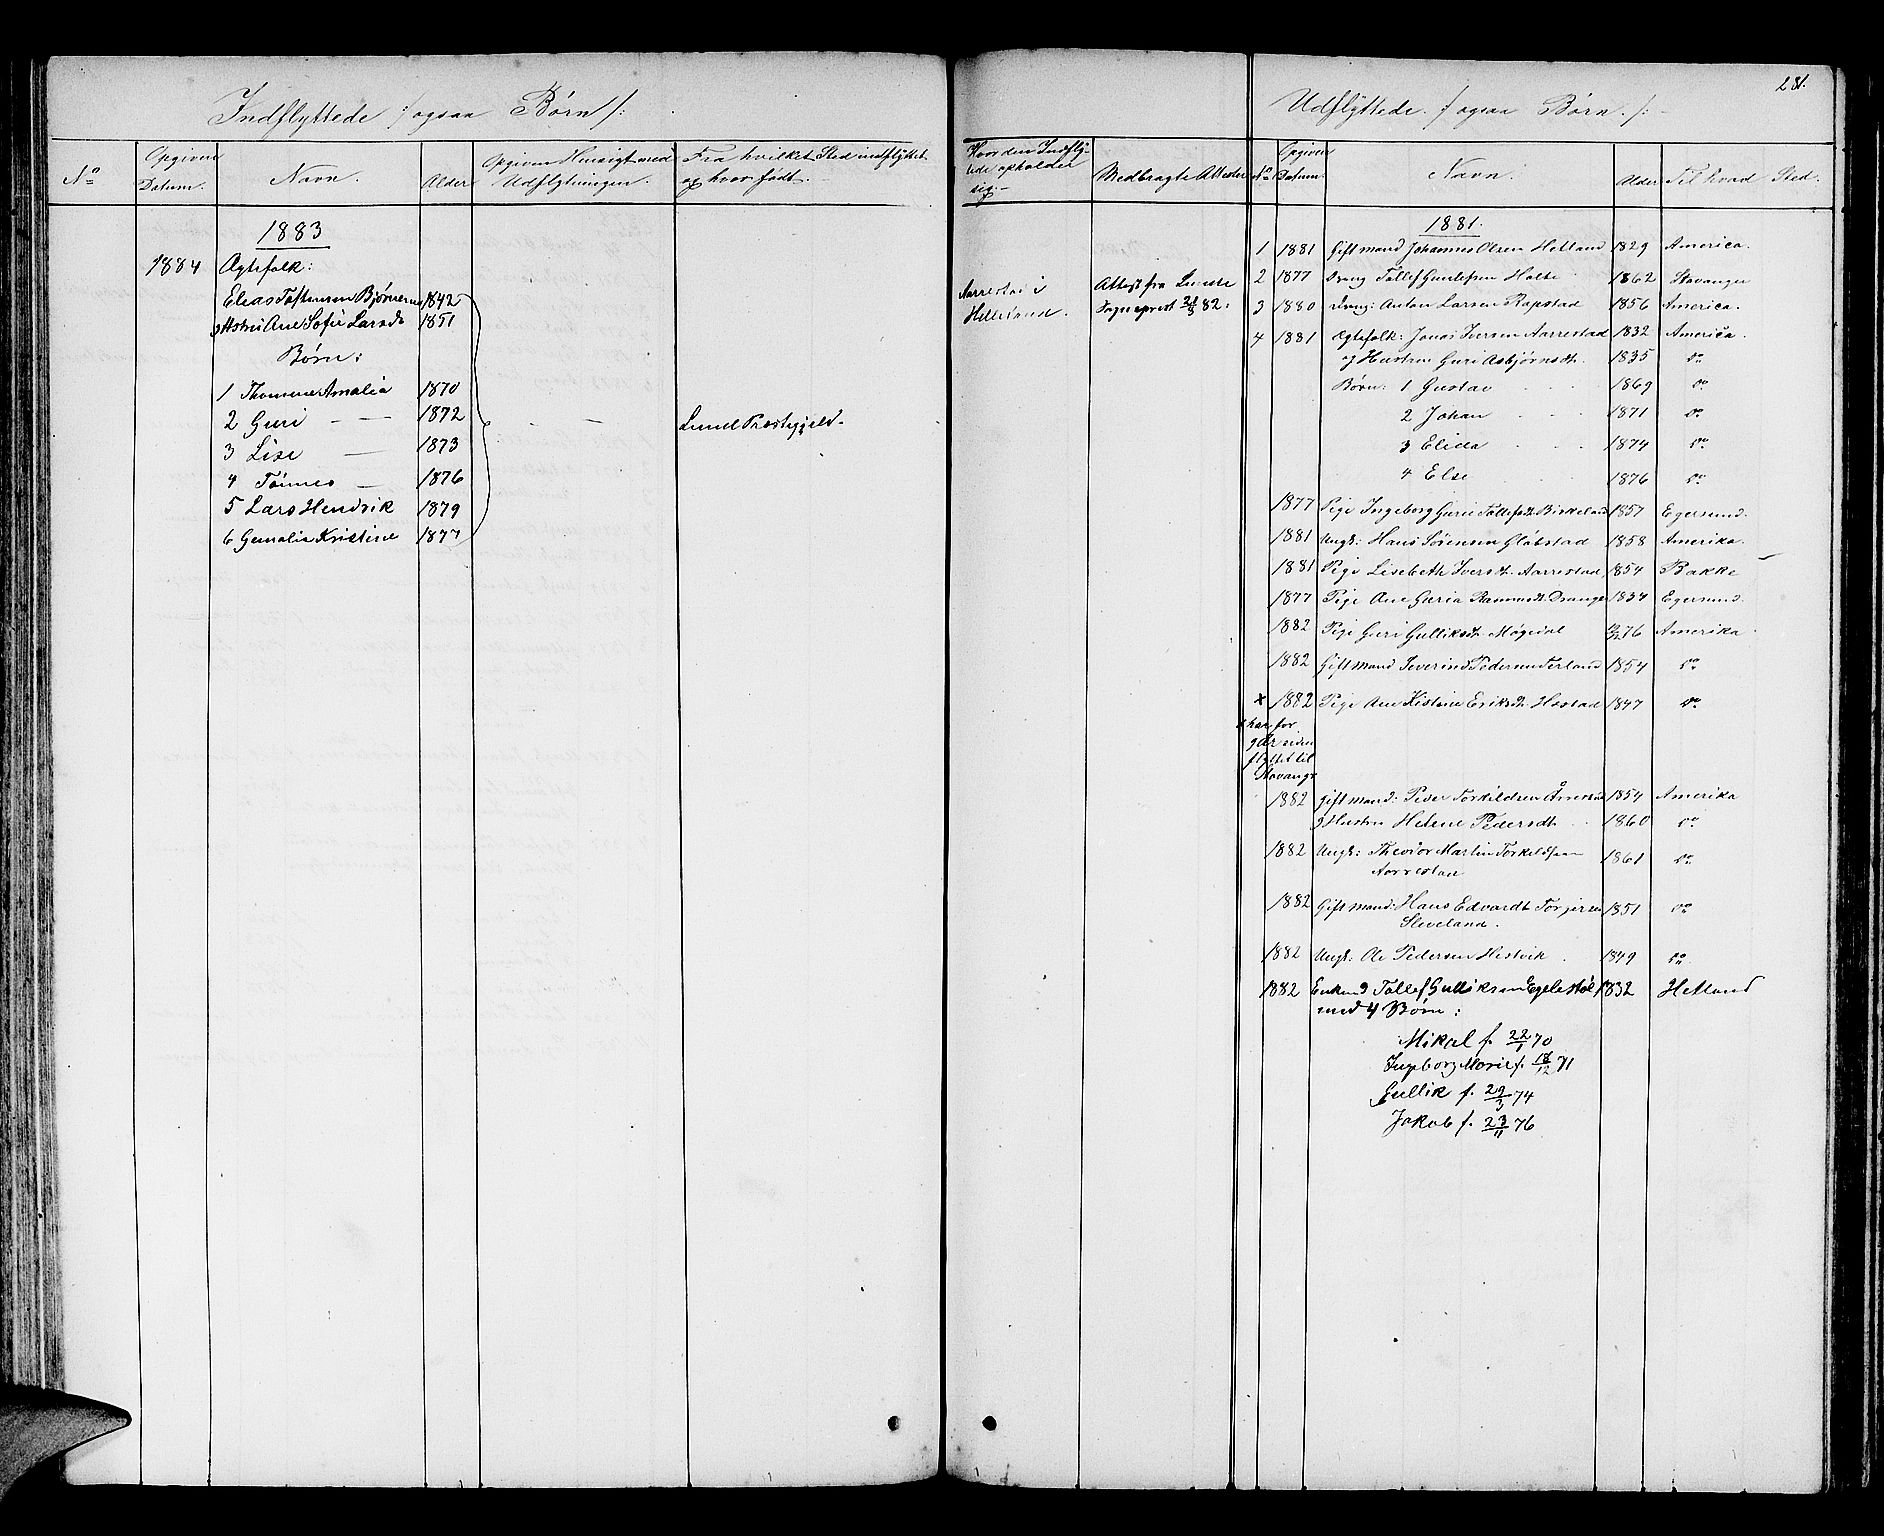 Indflyttede /: ogsaa Børn /:
No
Opgiven Datum.
Navn.
Alder
Opgiven Hensigt med Udflytningen.
Fra hvilket Sted indflyttet og hvor født.
1883
1884 Ægtefolk:
Elias Tostensen 1842
Ane Sofie Larsdt 1851
Børn:
1 Thomine Amalia 1870
2 Guri — 1872
3 Lise — 1873
4 Tønnes — 1876
5 Lars Hendrik 1879
6 Gemalie Kristine 1877
Lund Præstegjeld.
281.
Udflyttede /: ogsaa Børn. /:
Hvor den Indflyttede opholder sig.
Medbragte Attester
No
Opgiven Datum.
Navn.
Alder
Til hvad Sted.
Aarrestad i Helleland.
Attest fra Lunde Sognepræst 82.
1881.
1 1881 Gift mand Johannes Olsen Hetland 1829 America.
2 1877 Dreng Tollef Gunlefsen Holte 1862 Stavanger
3 1880 Dreng: Anton Larsen Rapstad 1856 America.
4 1881 Ægtefolk: Jonas Iversen Aarrestad 1832 America.
og Hustru Guri Asbjørnsdt. 1835 do
Børn: 1 Gustav 1869 do
2 Johan 1871 do
3 Elida 1874 do
4 Else 1876 do
1877 Pige Ingeborg Gurie Tollefsdt. Birkeland 1857 Egersund.
1881 Ungk: Hans Sørensen Gløbstad 1858 Amerika.
1881 Pige Lisebeth Iversdt. Aarrestad 1854 Bakke
1877 Pige Ane Guria Rasmusdt. Drange 1834 Egersund.
1882 Pige Guri Gulliksdt. Møgedal 76 Amerika.
1882 Gift mand Severin Pedersen Terland 1854 do
x 1882 Pige Ane Kistine Eriksdt. Hostad 1847 do
x har for
9 Aar siden
flyttet til
Stavangr
1882 Gift mand: Peder Torkildsen Årrestad 1854 Amerika
og Hustru Helene Pedersdt. 1860 do
1882 Ungk: Theodor Martin Torkildsen 1861 do
Aarrestad
1882 Gift mand: Hans Edvardt Torjersen 1851 do
Sleveland.
1882 Ungk: Ole Pedersen Hestvik 1849 do
1882 Enkemd Tollef Gulliksen Egelestøl 1832 Hetland
med 4 Børn:
Mikal f. 22/1 70
Ingeborg Marie f. 18/12 71
Gullik f. 29/3 74
Jakob f. 23/11 76